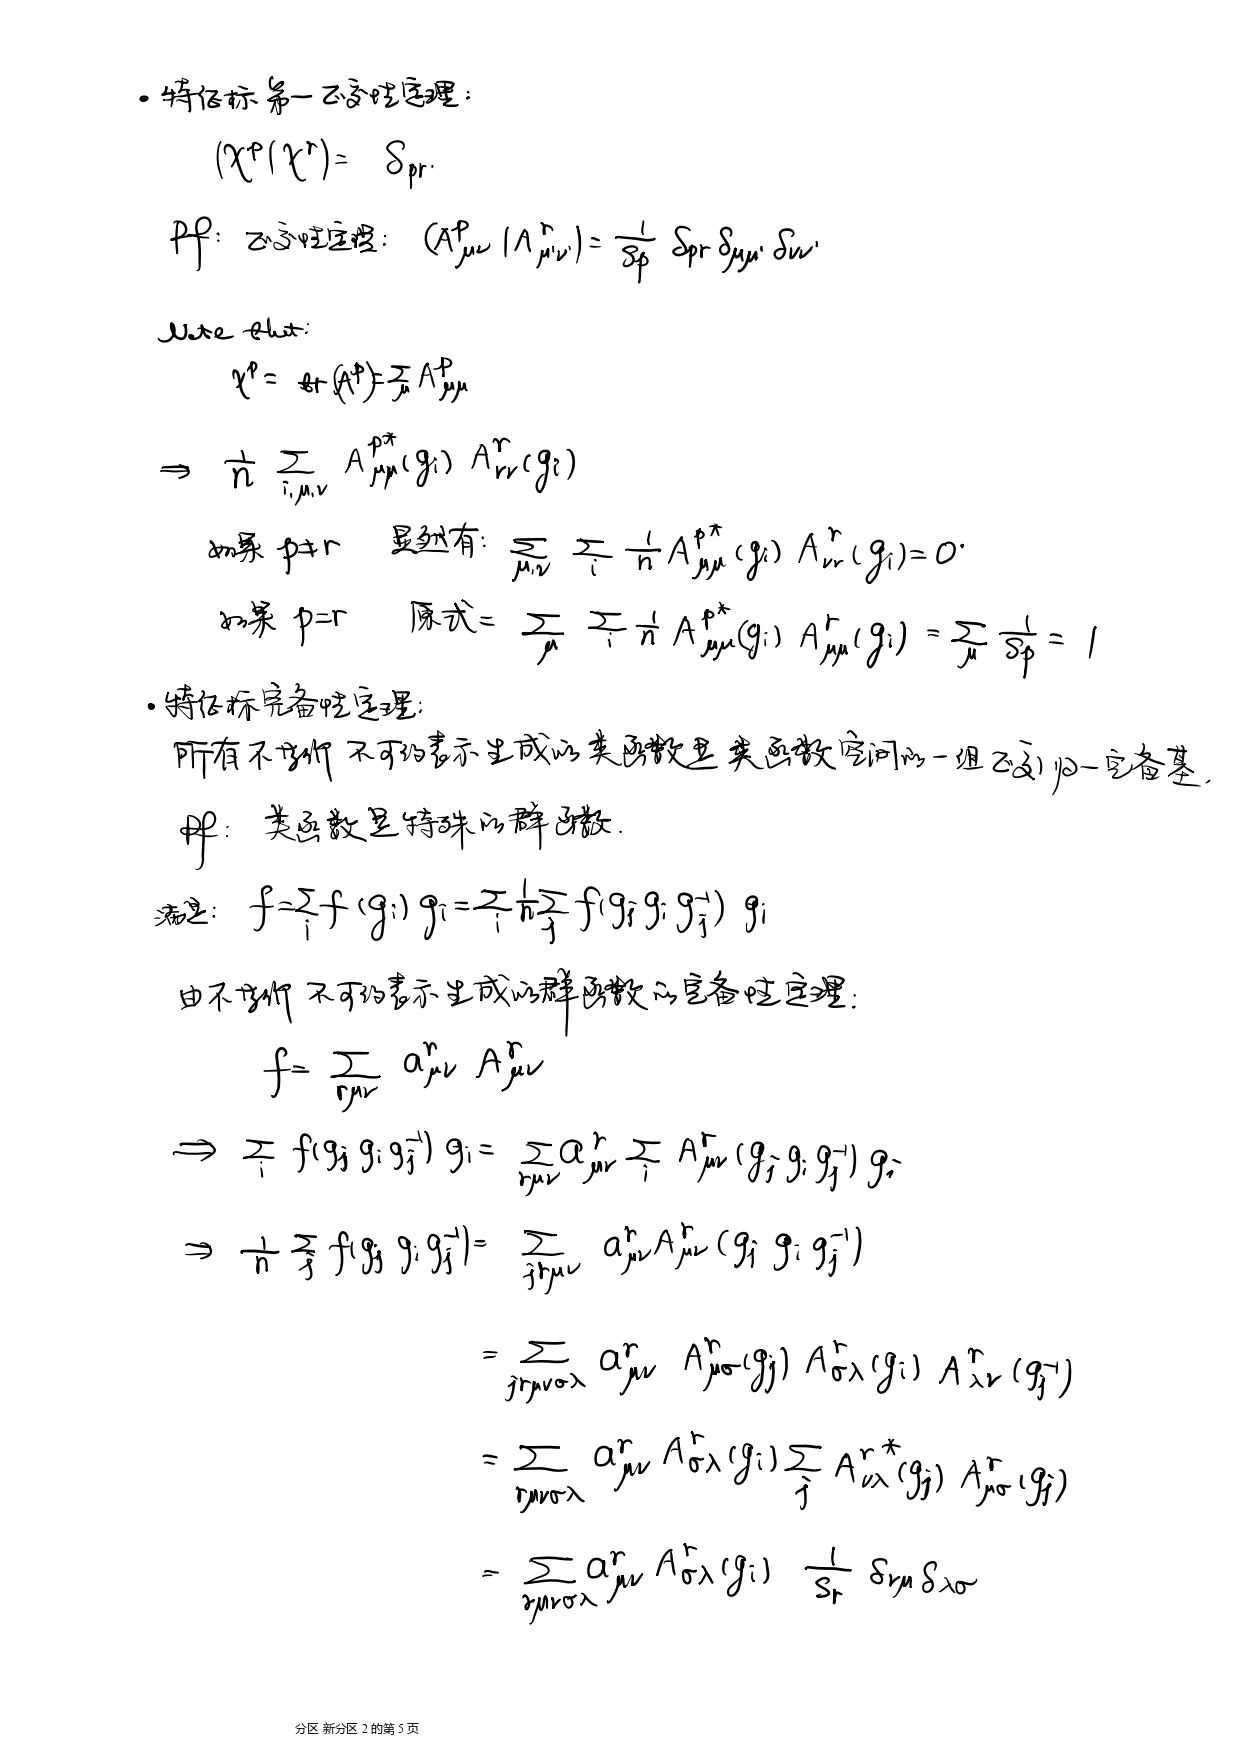 • 特征标第一正交性定理:
(χ^p|χ^r) = δ_{pr}.
Pf: 正交性定理: (A^p_{μν}|A^r_{μ'ν'}) = \frac{1}{S_p} δ_{pr} δ_{μμ'} δ_{νν'}
Note that:
χ^p = tr(A^p) = \sum_μ A^p_{μμ}
⇒ \frac{1}{n} \sum_{i,μ,ν} A^{p*}_{μμ}(g_i) A^r_{νν}(g_i)
如果 p≠r 显然有: \sum_{μ,ν} \sum_i \frac{1}{n} A^{p*}_{μμ}(g_i) A^r_{νν}(g_i) = 0.
如果 p=r 原式 = \sum_μ \sum_i \frac{1}{n} A^{p*}_{μμ}(g_i) A^r_{μμ}(g_i) = \sum_μ \frac{1}{S_p} = 1
• 特征标完备性定理:
所有不等价不可约表示生成的类函数是类函数空间的一组正交归一完备基.
Pf: 类函数是特殊的群函数.
满足: f = \sum_i f(g_i) g_i = \sum_i \frac{1}{n} \sum_j f(g_j g_i g_j^{-1}) g_i
由不等价不可约表示生成的群函数的完备性定理:
f = \sum_{rμν} a^r_{μν} A^r_{μν}
⇒ \sum_i f(g_j g_i g_j^{-1}) g_i = \sum_{rμν} a^r_{μν} \sum_i A^r_{μν}(g_j g_i g_j^{-1}) g_i
⇒ \frac{1}{n} \sum_j f(g_j g_i g_j^{-1}) = \sum_{jrμν} a^r_{μν} A^r_{μν}(g_j g_i g_j^{-1})
= \sum_{jrμνσλ} a^r_{μν} A^r_{μσ}(g_j) A^r_{σλ}(g_i) A^r_{λν}(g_j^{-1})
= \sum_{rμνσλ} a^r_{μν} A^r_{σλ}(g_i) \sum_j A^{r*}_{νλ}(g_j) A^r_{μσ}(g_j)
= \sum_{rμνσλ} a^r_{μν} A^r_{σλ}(g_i) \frac{1}{S_r} δ_{νμ} δ_{λσ}
分区 新分区 2 的第 5 页